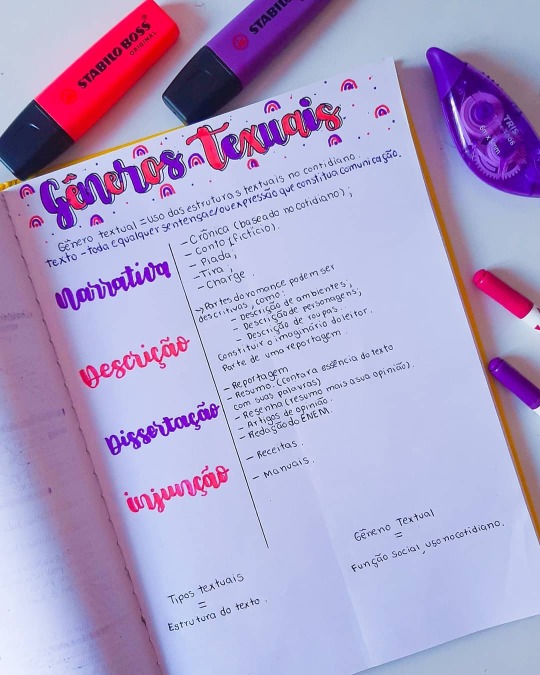 STABILO BOSS
ORIGINAL
STABILO BOSS
TRIS
Gêneros Texuais
Gênero textual = Uso das estruturas textuais no contidiano.
Texto - toda e qualquer sentença e/ou expressão que constitua comunicação.
Narrativa
- Crônica (baseado no cotidiano);
- Conto (fictício).
- Piada;
- Tira;
- Charge.
Descrição
→ Partes do romance podem ser
descritivas, como:
- Descrição de ambientes;
- Descrição de personagens;
- Descrição de roupas.
Constituir o imaginário do leitor.
Parte de uma reportagem.
Dissertação
- Reportagem
- Resumo. (contar a essência do texto
com suas palavras)
- Resenha (resumo mais a sua opinião).
- Artigos de opinião.
- Redação do ENEM.
injunção
- Receitas.
- Manuais.
Tipos textuais
=
Estrutura do texto.
Gêneno Textual
=
Função social, uso no cotidiano.